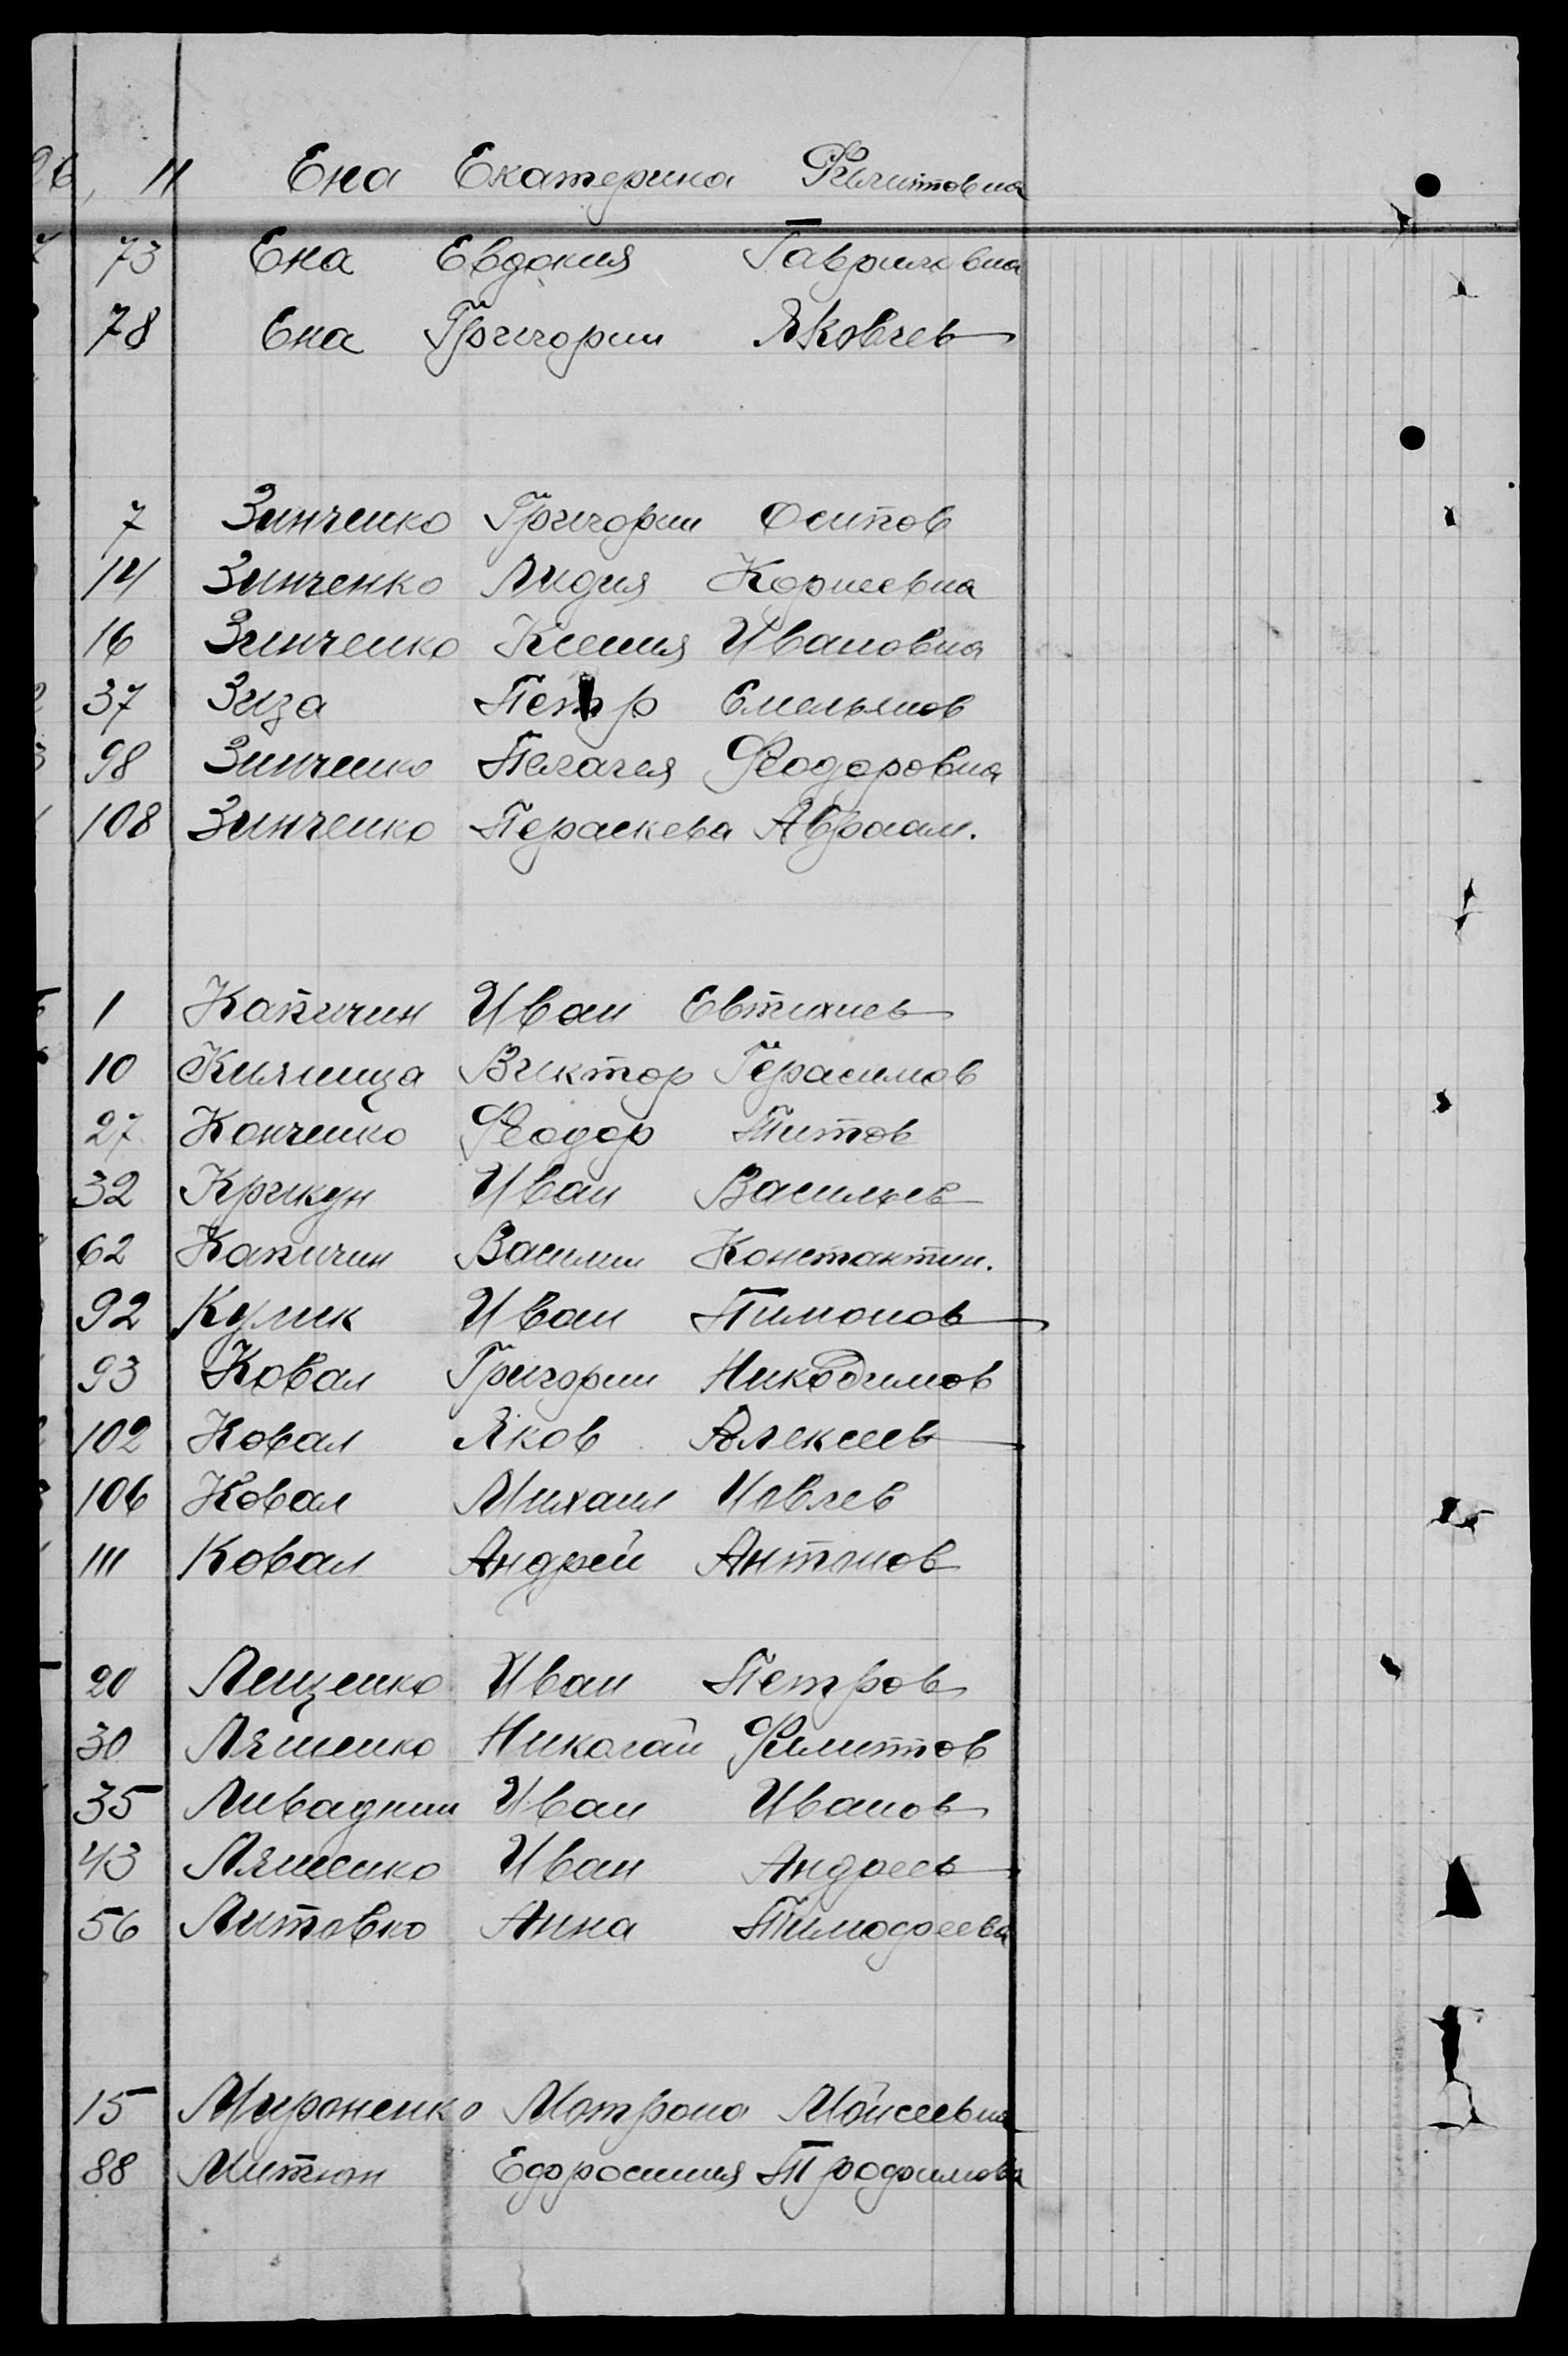 11 Ена Екатерина Филиповна
73 Ена Евдокия Гавриловна
78 Ена Григории Яковлев
7 Зинченко Григории Осипов
14 Зинченко Лидия Корнеевна
16 Зинченко Ксения Ивановна
37 Зиза Петр Емельянов
98 Зинченко Пелагея Феодоровна
108 Зинченко Пераскева Авраам.
1 Капичин Иван Евтихиев
10 Виктор Герасимов
27 Конченко Феодор Титов
32 Крикун Иван Васильев
62 Капичин Василии Константин.
92 Кулик Иван Пимонов
93 Ковал Григории Никодимов
102 Ковал Яков Алексеев
106 Ковал Михаил Иовлев
111 Ковал Андрей Антонов
20 Лещенко Иван Петров
30 Ляшенко Николай Филиппов
35 Ливаднии Иван Иванов
43 Ляшенко Иван Андреев
56 Литовко Анна Тимофеева
15 Мироненко Мотрона Моисеевна
88 Митюн Ефросиния Трофимова